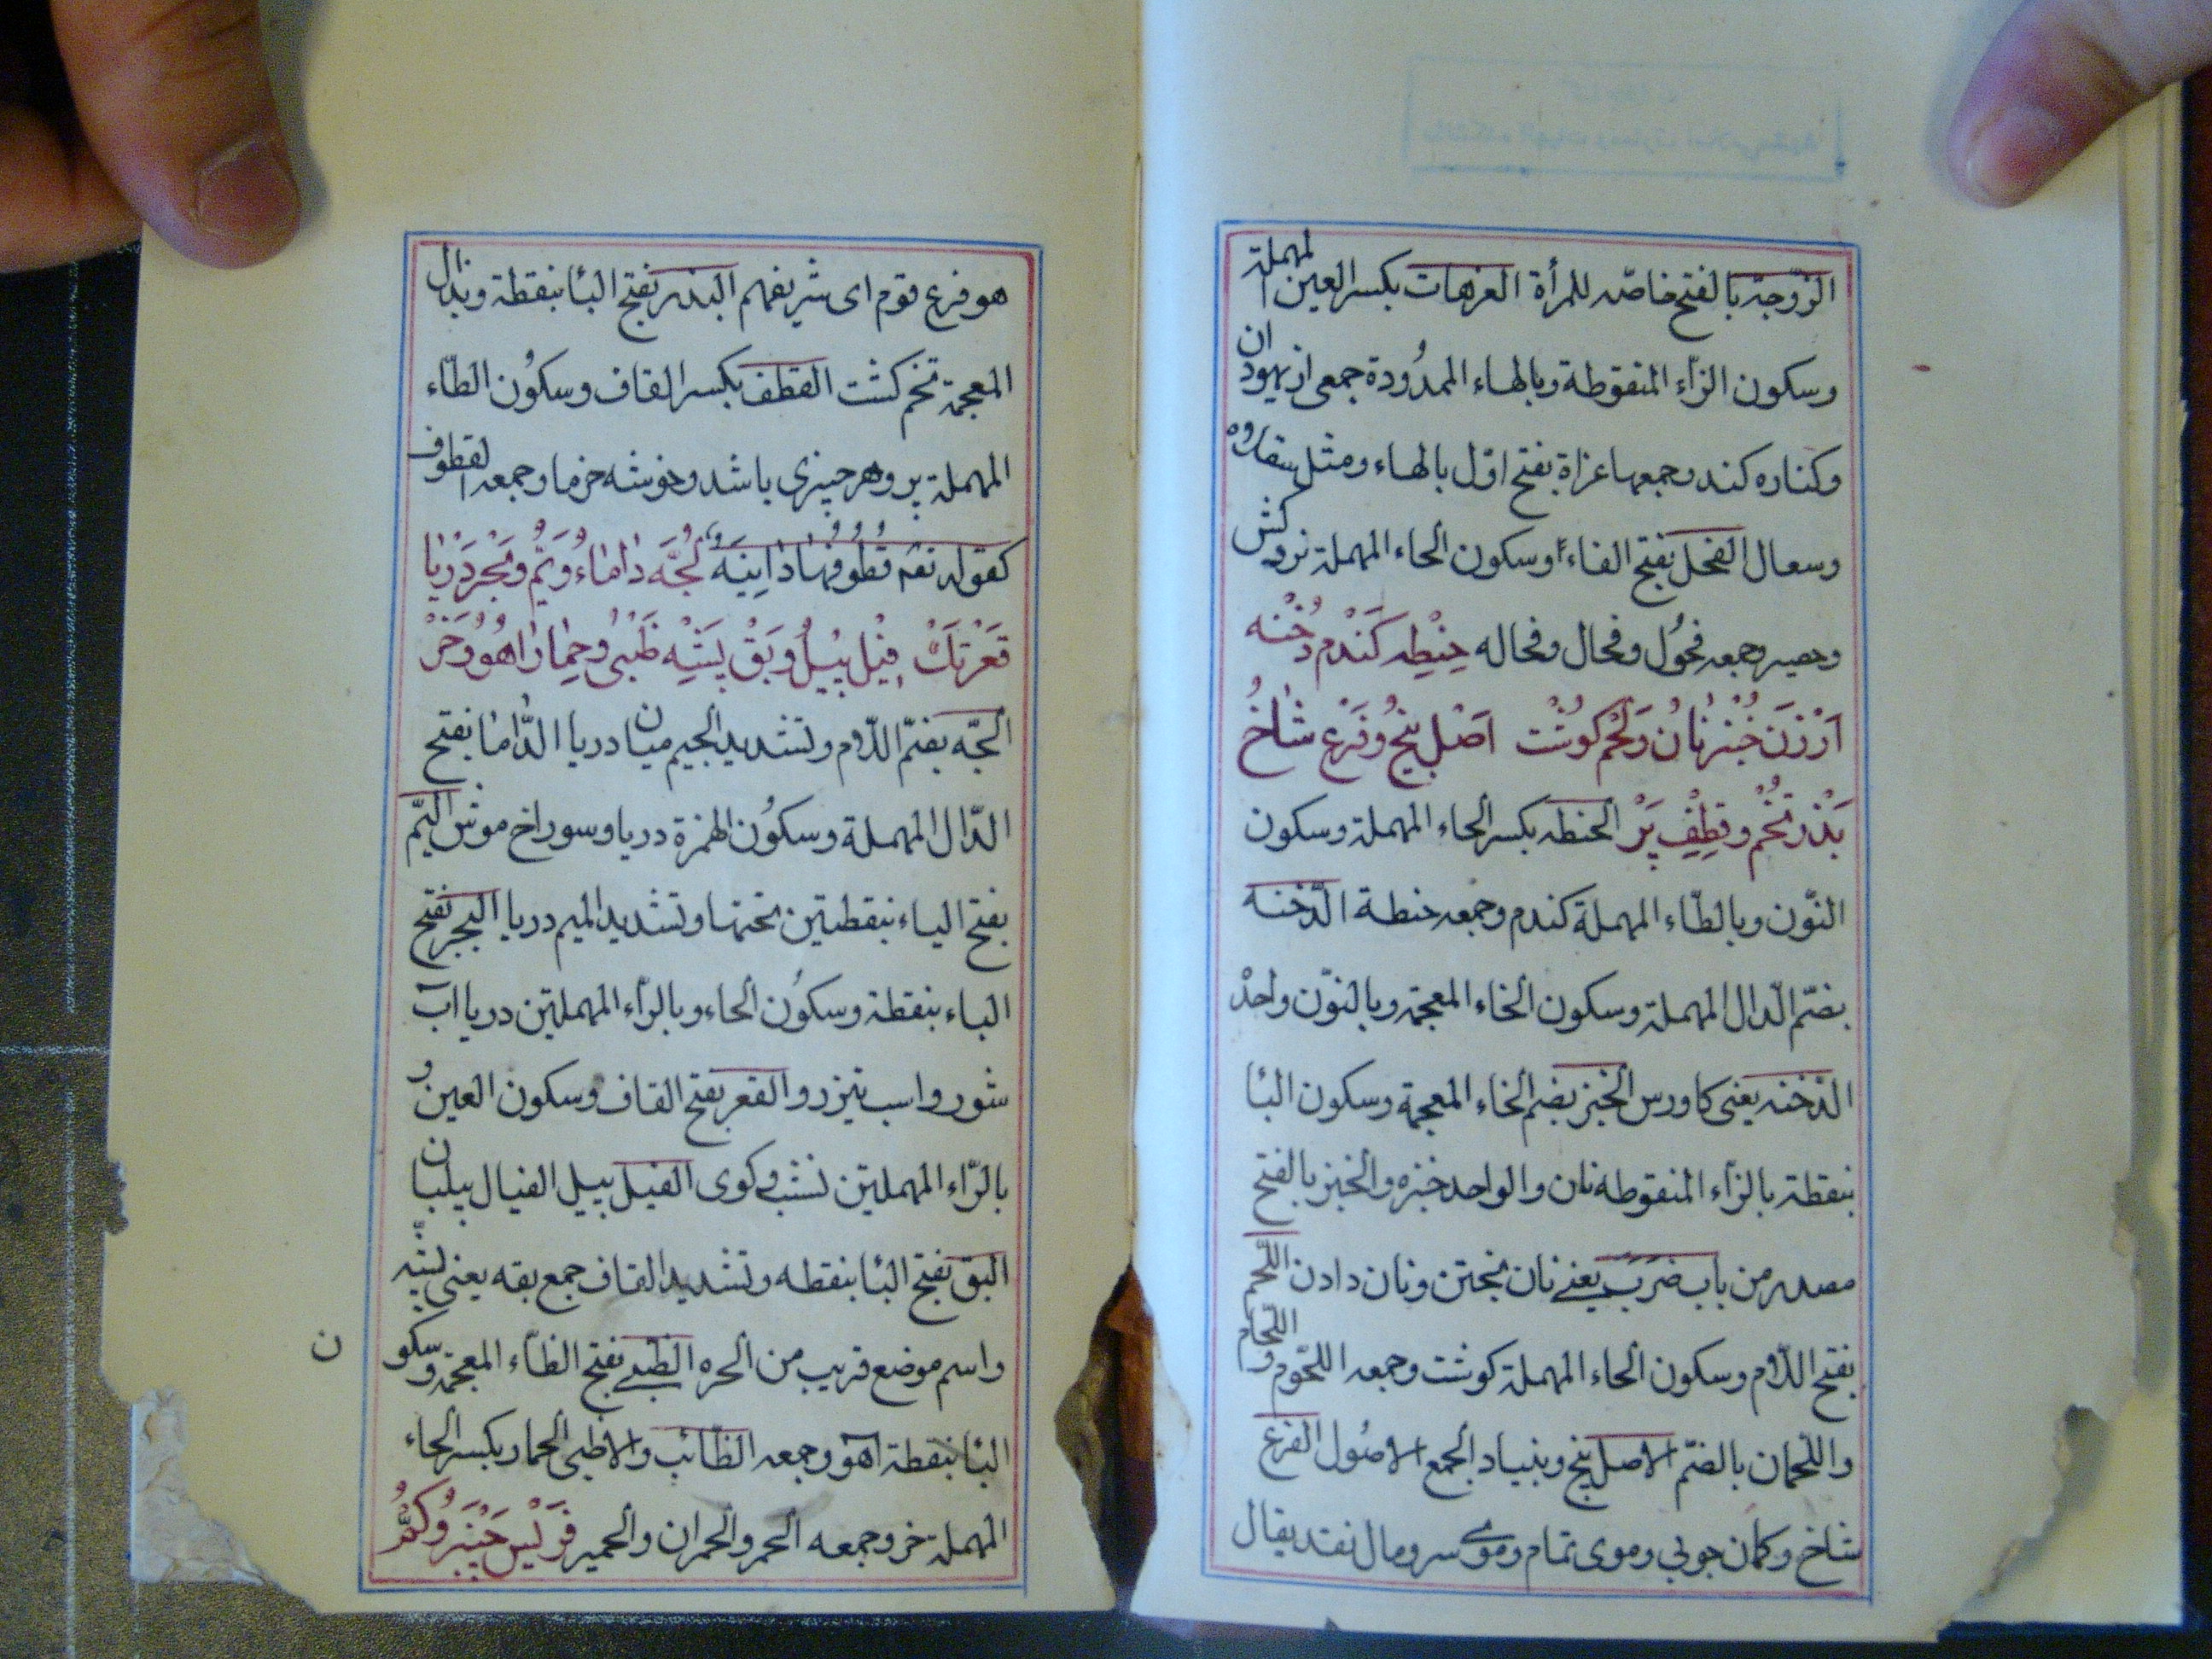 الزّوجة بالفتح خاصّه للمرأة العزهات بكسر العين المهملة
وسكون الزآء المنقوطة وبالهاء الممدُودة جمعى از يهودان
وكناره كند وجمعها عزاة بفتح اوّل بالهاء ومثل
وسعال الفحل بفتح الفاء وسكون الحاء المهملة نر وكش
وحصير وجمعه فحُول وفحال وفحاله حِنْطِه كَنْدُم دُخْنه
اَرْزَن خُبْز نٰان وَلَحْم كوُشْت اَصْل بيْخُ وفَرْع شٰاخُ
بَذْر تُخْم وقِطْفِ بَرْ الحنطه بكسر الحاء المهملة وسكون
النّون وبالطّاء المهملة كندم وجمعه حنطة الدّخنه
بضمّ الدّال المهملة وسكون الخاء المعجمة وبالنوّن واحدْ
الدّخنه يعنى كاورس الخبز بضم الخاء المعجمة وسكون البا
بنقطة بالزآء المنقوطه نان والواحد خبزه والخبز بالفتح
مصدر من باب ضَرَبَ يعنے نان پختن ونان دادن اللّحم
بفتح اللّام وسكون الحاء المهملة كوشت وجمعه اللحّوم و اللّحام
واللّحمان بالضمّ الاصل بيخ وبنياد الجمع الاصُول الفرع
شاخ وكمان جوبى وموى تمام وموى سر ومال نقد يقال
هو فرع قوم اى شريفهم البذر بفتح البا بنقطة وبذال
المعجمة تخم كشت القطف بكسر القاف وسكوُن الطّاء
المهملة بر وهر چيزى باشد وخوشه خرما وجمعه القطوف
كقوله تعٰ قُطُوفُهٰا دٰانِيَة لُجَّه دٰامٰاءُ وَيَمُّ وبَحْر دَرْيٰا
قَعْر تَك فِيْل پيْلُ وَبَقْ پَشِّه ظَبْىُ وحِمٰار اهُو وَخَرْ
الجّه بضمّ اللّام وتشديد الجيم ميان دريا الدّامٰا بفتح
الدّال المهملة وسكوُن الهمزة دريا وسوراخ موش اليّم
بفتح الياء بنقطتين تحتها وتشديد الميم دريا البحر بفتح
الباء بنقطة وسكوُن الحاء وبالرّاء المهملتين دريا آب
شور واسب تيزرو القعر بفتح القاف وسكون العين و
بالرّاء المهملتين نشيب كوى الفيل پيل الفيال پيلبان
البق بفتح البا بنقطه وتشديد القاف جمع بقه يعنى پشّه
واسم موضع قريب من الحره الظبى بفتح الظآء المعجمة وسكو ن
البا بنقطة آهو وجمعه الظبائب والاظبى الحمار بكسر الحاء
المهملة خر وجمعه الحمر والحمران والحمير